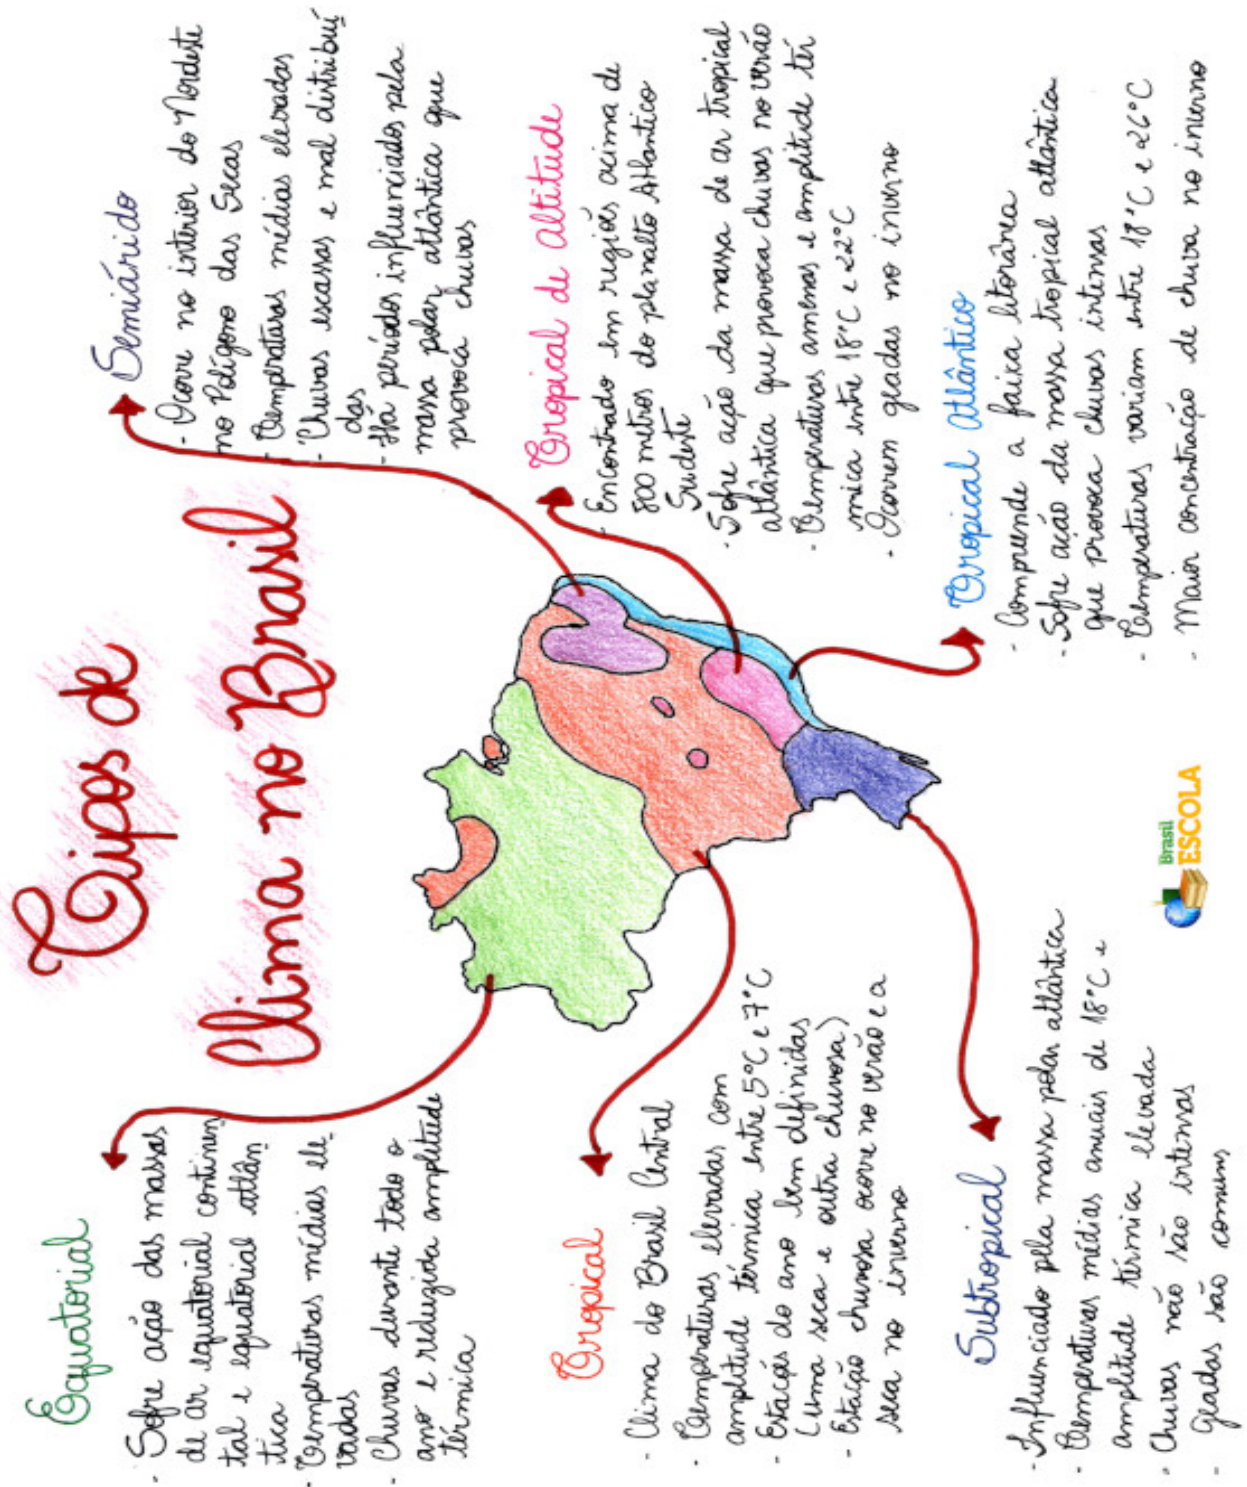 Tipos de
Clima no Brasil
Equatorial
- Sofre ação das massas
de ar equatorial continen
tal e equatorial atlân
tica
- Temperaturas médias ele
vadas
- Chuvas durante todo o
ano e reduzida amplitude
térmica
Tropical
- Clima do Brasil Central
- Temperaturas elevadas com
amplitude térmica entre 5°C e 7°C
- Estação do ano bem definidas
(uma seca e outra chuvosa)
- Estação chuvosa ocorre no verão e a
seca no inverno
Subtropical
- Influenciado pela massa polar atlântica
- Temperaturas médias anuais de 18°C e
amplitude térmica elevada
- Chuvas não são intensas
- Geadas são comuns
Semiárido
- Ocorre no interior do Nordeste
no Polígono das Secas
- Temperaturas médias elevadas
- Chuvas escassas e mal distribuí
das
- Há períodos influenciados pela
massa polar atlântica que
provoca chuvas
Tropical de altitude
- Encontrado em regiões acima de
800 metros do planalto Atlântico
Sudeste
- Sofre ação da massa de ar tropical
atlântica que provoca chuvas no verão
- Temperaturas amenas e amplitude tér
mica entre 18°C e 22°C
- Ocorrem geadas no inverno
Tropical atlântico
- Compreende a faixa litorânea
- Sofre ação da massa tropical atlântica
que provoca chuvas intensas
- Temperaturas variam entre 18°C e 26°C
- Maior concentração de chuva no inverno
Brasil
ESCOLA